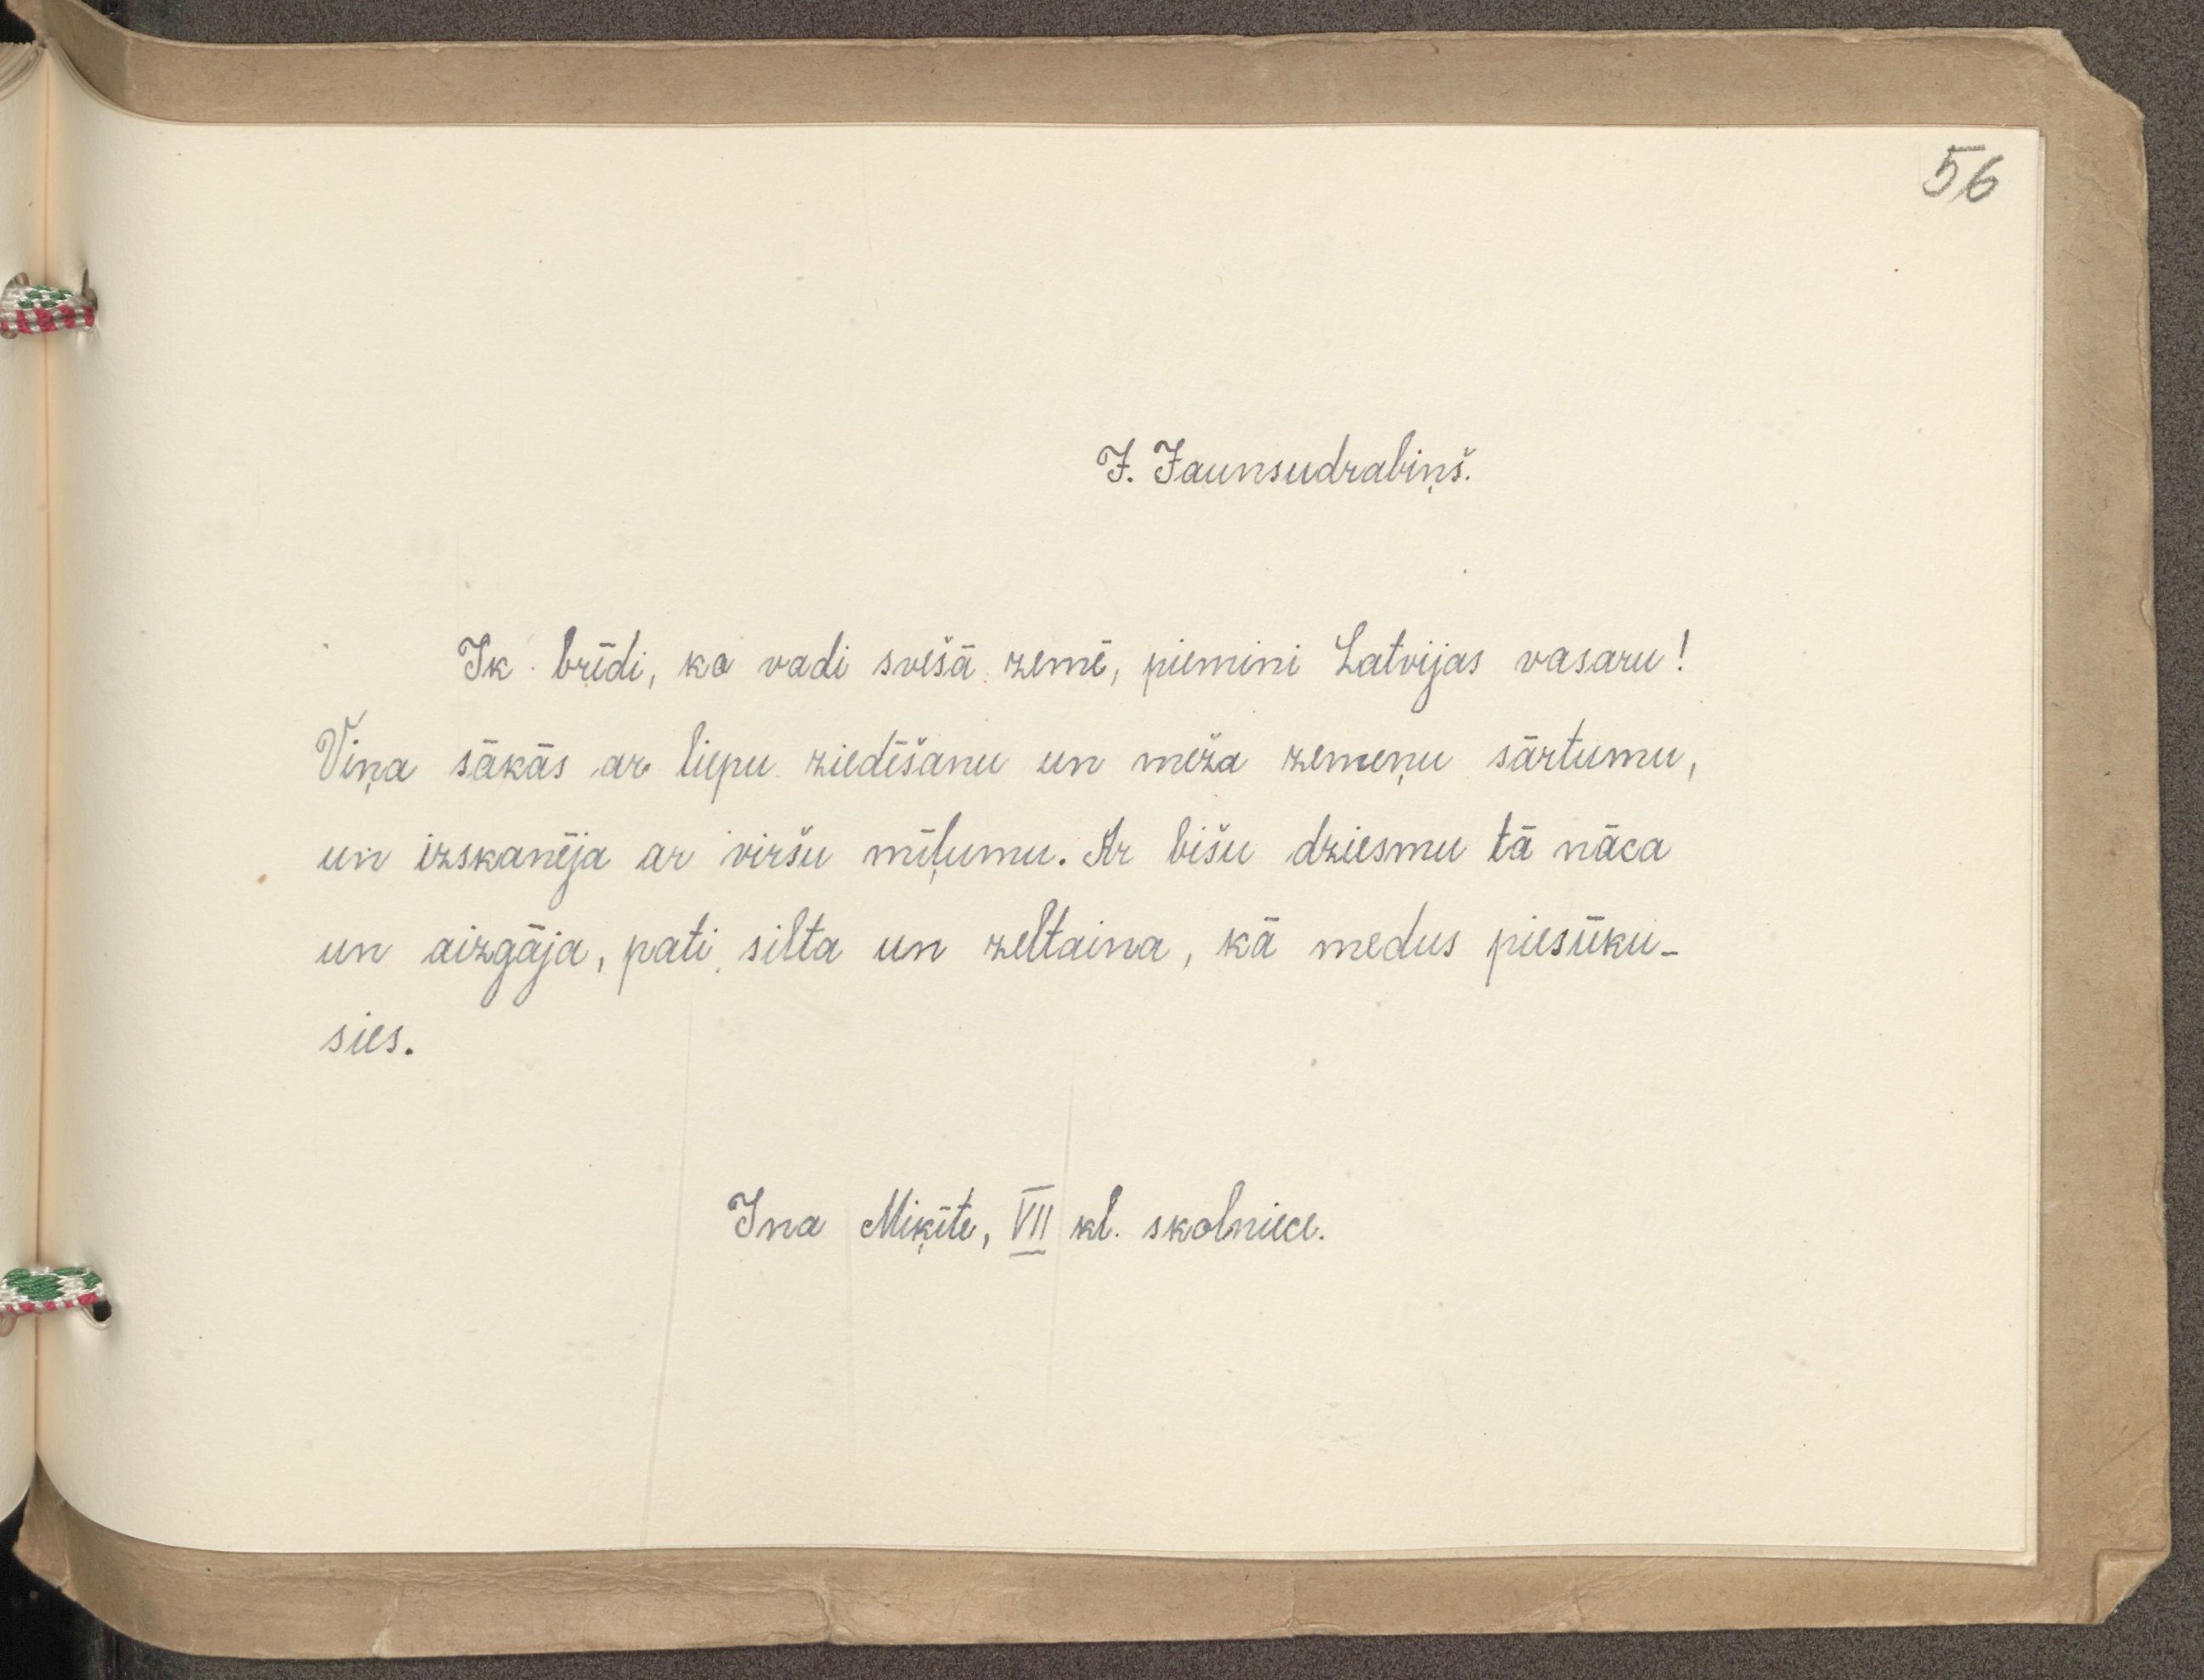 56
J. Jaunsudrabiņš.
Ik brīdi, ko vadi svešā zemē, piemini Latvijas vasaru!
Viņa sākās ar liepu ziedēšanu un meža zemeņu sārtumu,
un izskanēja ar viršu mīļumu. Ar bišu dziesmu tā nāca
un aizgāja, pati silta un zeltaina, kā medus piesūku-
sies.
Ina Miķīte, VII kl. skolniece.